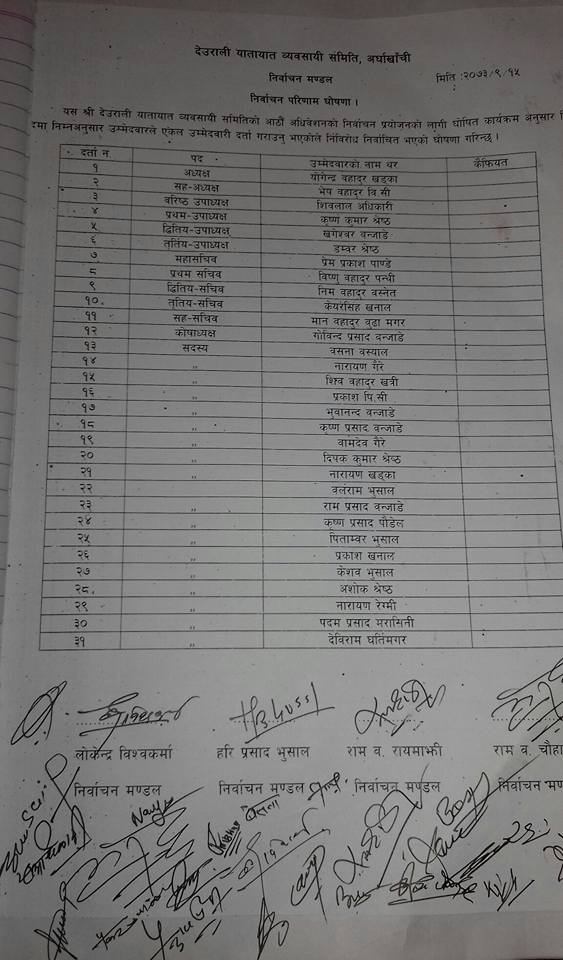 देउराली यातायात व्यवसायी समिति, अर्घाखाँची
निर्वाचन मण्डल
मिति :२०७३/९/१५
निर्वाचन परिणाम घोषणा ।
यस श्री देउराली यातायात व्यवसायी समितिको आठौं अधिवेशनको निर्वाचन प्रयोजनको लागी घोषित कार्यक्रम अनुसार
निम्नअनुसार उम्मेदवारले एकल उम्मेदवारी दर्ता गराउनु भएकोले निर्विरोध निर्वाचित भएको घोषणा गरिन्छ ।
दर्ता न पद उम्मेदवारको नाम थर कैफियत
१ अध्यक्ष योगेन्द्र वहादुर खड्का
२ सह-अध्यक्ष भेप वहादुर वि.सी
३ वरिष्ठ उपाध्यक्ष शिवलाल अधिकारी
४ प्रथम-उपाध्यक्ष कृष्ण कुमार श्रेष्ठ
५ द्वितिय-उपाध्यक्ष खगेश्वर वन्जाडे
६ तर्तिय-उपाध्यक्ष डम्वर श्रेष्ठ
७ महासचिव प्रेम प्रकाश पाण्डे
८ प्रथम सचिव विष्णु वहादुर पन्थी
९ द्वितिय-सचिव निम वहादुर वस्नेत
१० तृतिय-सचिव केयरसिंह खनाल
११ सह-सचिव मान वहादुर वुढा मगर
१२ कोषाध्यक्ष गोविन्द प्रसाद वन्जाडे
१३ सदस्य वसना वस्याल
१४ ,, नारायण गैरे
१५ ,, शिव वहादुर खत्री
१६ ,, प्रकाश पि.सी
१७ ,, भुवानन्द वन्जाडे
१८ ,, कृष्ण प्रसाद वन्जाडे
१९ ,, वामदेव गैरे
२० ,, दिपक कुमार श्रेष्ठ
२१ ,, नारायण खड्का
२२ ,, वलराम भुसाल
२३ ,, राम प्रसाद वन्जाडे
२४ ,, कृष्ण प्रसाद पौडेल
२५ ,, पिताम्वर भुसाल
२६ ,, प्रकाश खनाल
२७ ,, केशव भुसाल
२८ ,, अशोक श्रेष्ठ
२९ ,, नारायण रेग्मी
३० ,, पदम प्रसाद मरासिनी
३१ ,, देविराम घर्तिमगर
लोकेन्द्र विश्वकर्मा हरि प्रसाद भुसाल राम व. रायमाझी राम व. चौहा
निर्वाचन मण्डल निर्वाचन मण्डल निर्वाचन मण्डल निर्वाचन मण